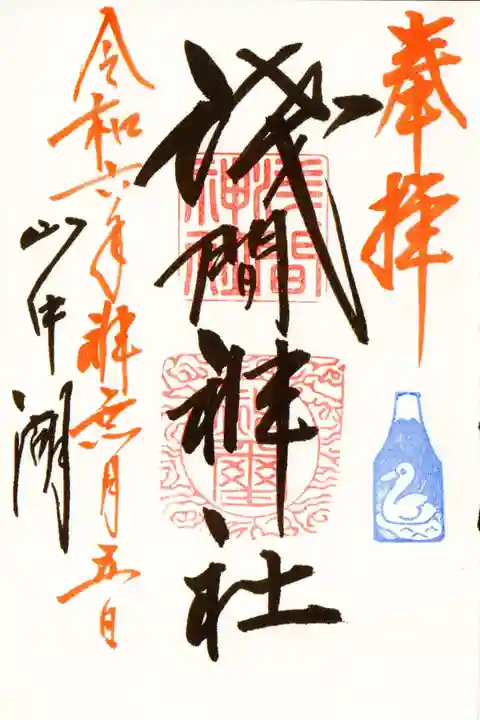 奉拝
浅間神社
浅間
神社
令和六年神無月五日
山中湖